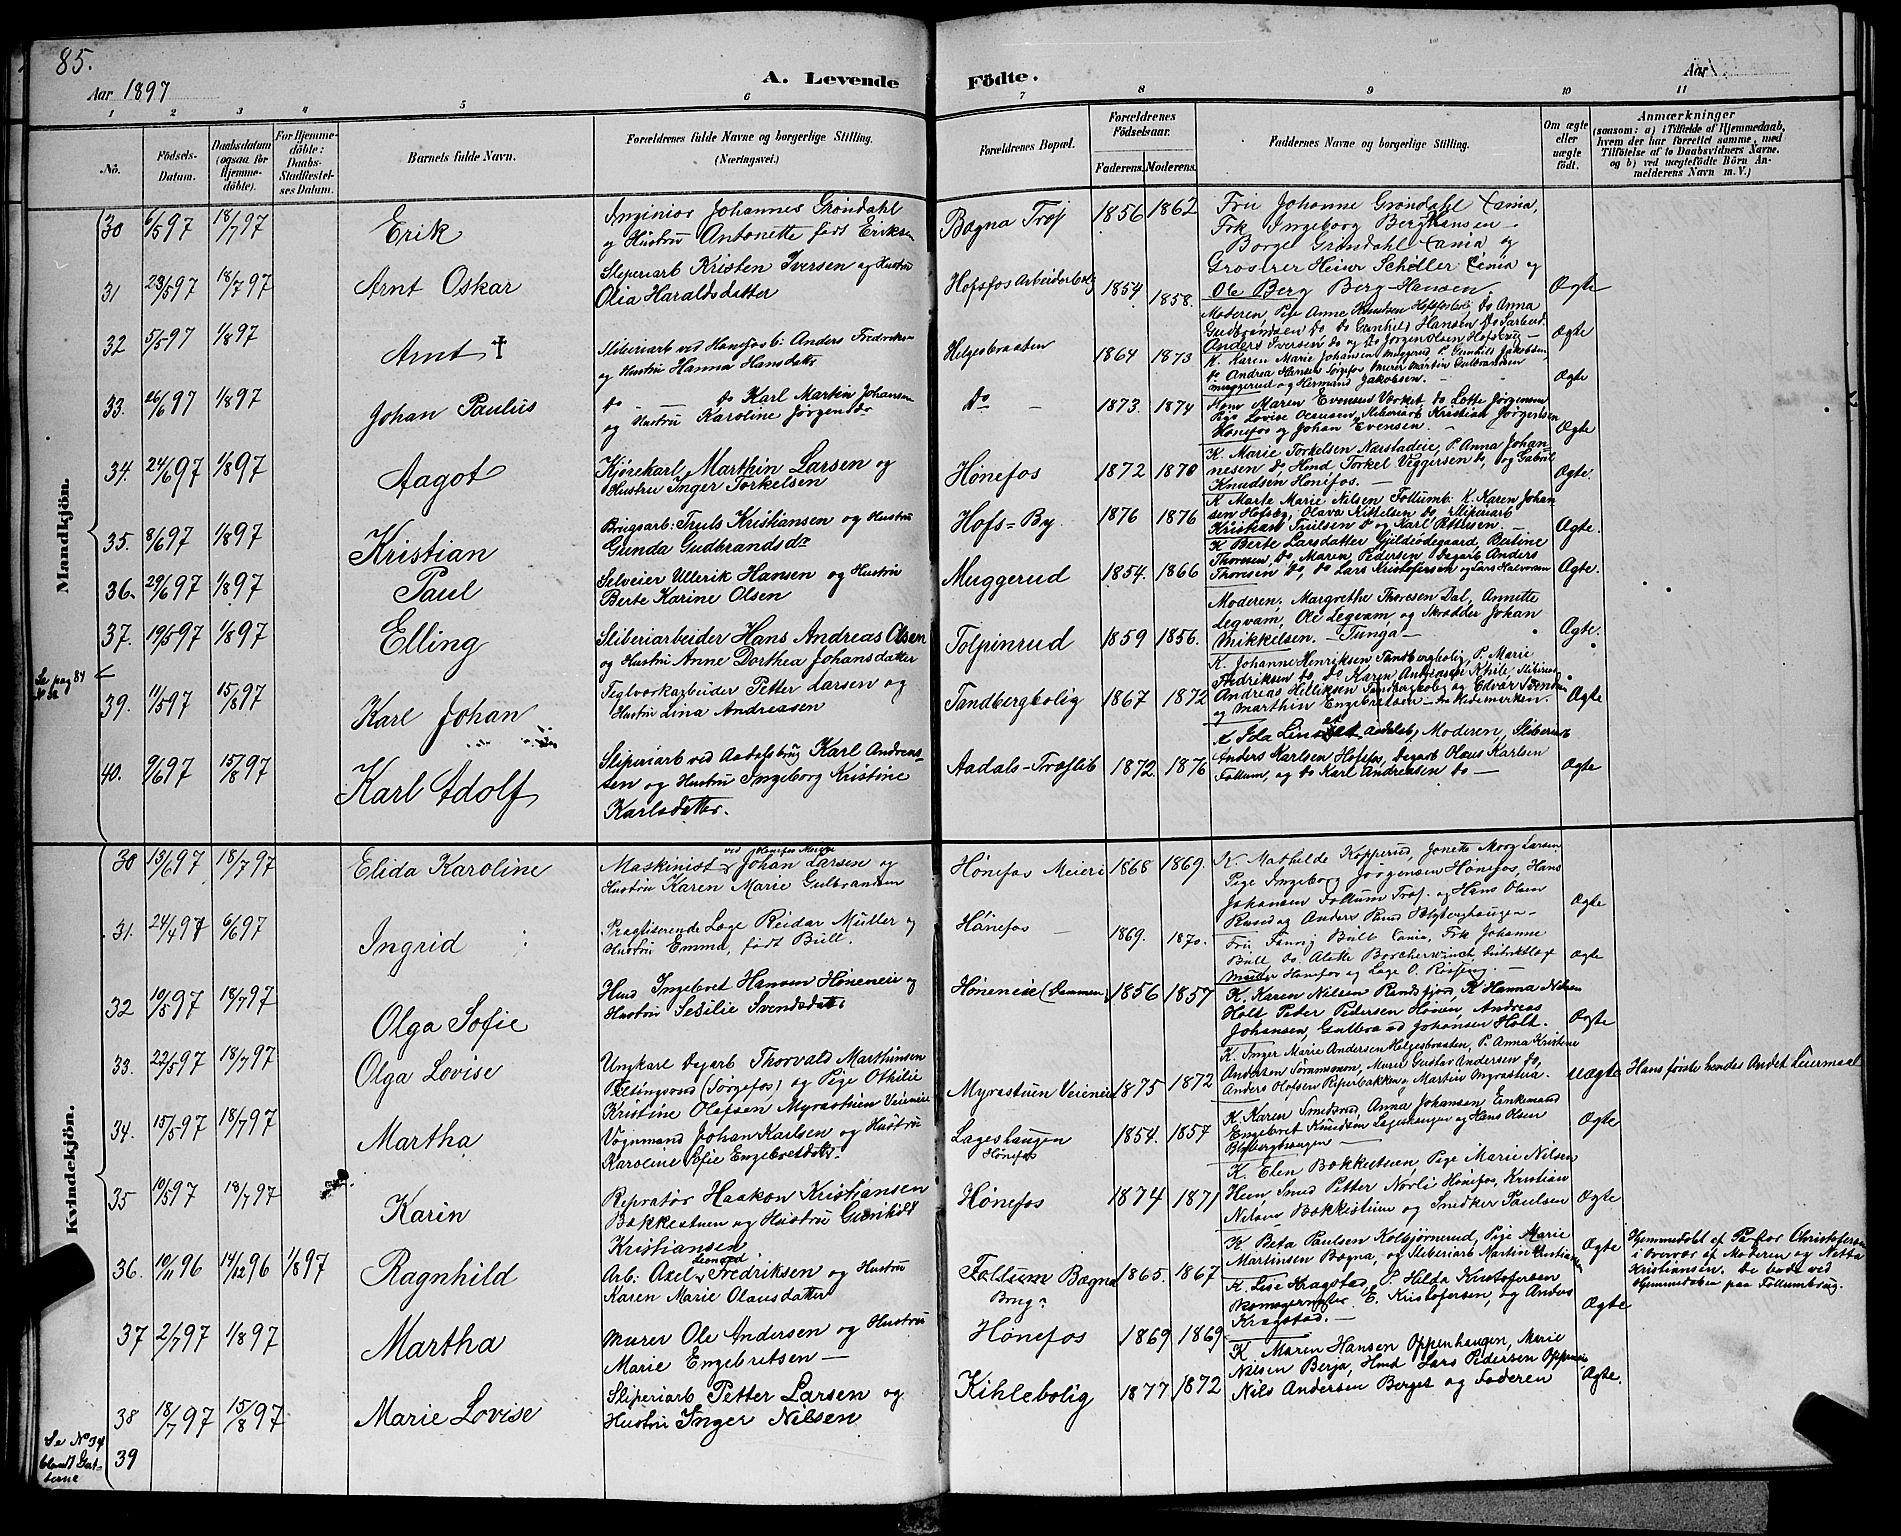 85.
Aar 1897
A. Levende Födte.
Aar
1 2 3 4 5 6 7 8 9 10 11
No.
Födsels-Datum.
Daabsdatum (ogsaa for Hjemmedöbte).
For Hjemmedöbte: Daabs-Stadfæstelses Datum.
Barnets fulde Navn.
Forældrenes fulde Navne og borgerlige Stilling. (Næringsvei.)
Forældrenes Bopæl.
Forældrenes Födselsaar.
Faderens. Moderens.
Faddernes Navne og borgerlige Stilling.
Om ægte eller uægte födt.
Anmærkninger
(saasom: a) i Tilfælde af Hjemmedaab, hvem der har forrettet samme, med Tilföielse af to Daabsvidners Navne, og b) ved uægtefödte Börn Anmelderens Navn m. V.)
Mandkjön.
30 6/5 97 18/7 97 Erik
Inginiör Johannes Gröndahl
og Hustru Antonette født Eriksen
Bægna Træs 1856 1862
Fru Johanne Gröndahl Xania,
Frk Ingeborg Berg Hansen -
Borge Gröndahl Xania og
Grosserer Heinr Schiller Xania og
Ole Berg Berg-Hansen. Ægte
31 23/5 97 18/7 97 Arnt Oskar
Sliperiarb Kristen Iversen og Hustru
Olia Haraldsdatter
Hofsfos Arbeiderbolig 1854 1858.
Moderen, Pige Anne Knudsen Hofsfosbolig, do Anna
Gudbrandsen do do Gunhild Hansen do
Anders Iversen do og do Jørgen Olsen Ægte
32 5/5 97 1/8 97 Arnt †
Sliberiarb ved Hønefos b: Anders Fredriksen
og Hustru Hanna Hansdatter
Helgesbraaten 1864 1873
K. Karen Marie Johansen Muggerud P. Gunhild Jakobsen,
do Andrea Hansen Murer Martin Gulbrandsen
Muggerud og Hermand Jakobsen. Ægte
33. 26/6 97 1/8 97 Johan Paulus
do - do Karl Martin Johansen
og Hustru Karoline Jørgensdr
do - 1873. 1874
Kone Maren Evensen Værket do Lotte Jørgensen
Pige Lovise Sliberiarb Kristian Jørgensen
Hønefos og Johan Evensen. Ægte
34. 24/6 97 1/8 97 Aagot
Kjørekarl Marthin Larsen og
Hustru Inger Torkelsen
Hønefos 1872 1870
K. Marie Torkelsen Næstadeie, P. Anna Johan-
nesen do, Hmd Torkel Viggersen do, og Gabriel
Knudsen Hønefos. - Ægte.
35. 8/6 97 1/8 97 Kristian
Brugsarb: Truls Kristiansen og Hustru
Gunda Gudbrandsdr
Hofs=By 1876 1876
K Marte Marie Nilsen Follumb: K. Karen Johan-
sen Hofsby, Olava Kittelsen do, Sliperiarb
Kristian Trulsen do og Karl Pettersen. - Ægte.
36. 29/6 97 1/8 97 Paul
Selveier Ullerik Hansen og Hustru
Berte Karine Olsen
Muggerud 1854. 1866
K Berte Larsdatter Gjildeødegaard, Bertine
Thoresen, do, Maren Pedersen Dagarb Anders
Thoresen do, do Lars Kristofersen og Lars Halvorsen Ægte.
37. 19/5 97 1/8 97 Elling
Sliberiarbeider Hans Andreas Olsen
og Hustru Anne Dorthea Johansdatter
Tolpinrud 1859 1856.
Moderen, Margrethe Thoresen Dal, Annette
Legvam, Ole Legvam, og Skrædder Johan
Mikkelsen. - Tunga - Ægte.
Se pag 84
39. 11/5 97 15/8 97 Karl Johan
Teglværkarbeider Petter Larsen og
Hustru Lina Andreasen
Tandbergbolig 1867 1872
K. Johanne Henriksen Tandbergbolig, P. Marie
Fredriksen do, do Karen Antonsen Khile, Sliberiarb
Andreas Henriksen Tandbergbolig og Edvar
og Marthin Engebretsen - fra Hedemarken. Ægte
40. 9/6 97 15/8 97 Karl Adolf
Sliperiarb ved Aadalsbrug Karl Andreas-
sen og Hustru Ingeborg Kristine
Karlsdatter.
Aadals-Træslib 1872 1876
K Ida Aadalsb, Moderen, Sliberiarb
Anders Karlsen Hofsfos, Dagarb Olaus Karlsen
Follum, og do Karl Andreasen do - Ægte
Kvindekjön.
30 13/6 97 18/7 97 Elida Karoline
ved Hønefos Meieri
Maskinist Johan Larsen og
Hustru Karen Marie Gulbrandsen
Hønefos Meieri 1868 1869.
K. Mathilde Kopperud, Jonette Moog Larsen
Pige Ingeborg Jørgensen Hønefos, Hans
Johansen Follum Træs. og Hans Olsen
og Anders Blybergshaugen - Ægte
31. 24/4 97 6/6 97 Ingrid
Practiserende Læge Reidar Müller og
Hustru Emma, født Bull.
Hønefos - 1869. 1870.
Fru Fanny Bull Xania, Frk Johanne
Bull do. Alette Borchgrevinck, Distriktslæge
Müller Hønefos og Læge O. - Ægte
32 10/5 97 18/7 97 Olga Sofie
Hmd Ingebret Hansen Høneneie og
Hustru Sesilie Svendsdatter
Høneneie (Dammen) 1856 1857
K. Karen Nilsen Randsfjord, K Hanna Nilsen
Holt Peder Pedersen Hønen, Andreas
Johansen, Gulbrand Johansen Holt. Ægte
33. 22/5 97 18/7 97 Olga Lovise
Ungkarl Dagarb Thorvald Marthinsen
(Sørgefos) og Pige Othilie
Kristine Olafsen Myrastuen Veieneie
Myrastuen Veieneie 1875 1872
K. Inger Marie Andersen Helgesbraaten, P. Anna Kristine
Andersen Murer Gustav Andersen do,
Anders Olafsen Piperbakken, Martin Myrastua. Uægte
Hans første hendes Andet Leiermaal
34. 15/5 97 18/7 97 Martha
Vognmand Johan Karlsen og Hustru
Karoline Sofie Engebretsdatter.
Lageshaugen
Hønefos 1854. 1857
K. Karen Anna Johansen Enkemand
Engebret Knudsen Lageshaugen og Hans Olsen
Blybergshaugen - Ægte
35 10/5 97 18/7 97 Karin
Reprator Haakon Kristiansen
Bakkestuen og Hustru Gunhild
Kristiansen
Hønefos 1874 1871
K. Elen Bakkestuen, Pige Marie Nilsen
Heen, Smed Petter Norli Hønefos, Kristian
Nilsen Bakkestuen og Snedker Paulsen Ægte
36. 10/11 96 14/12 96 1/8 97 Ragnhild
Arb: Axel Leonard Fredriksen og Hustru
Karen Marie Olausdatter
Follum Bægna
Brug 1865. 1867
K. Beta Paulsen Kolsjørnrud, Pige Marie
Martinsen Bægna, og Sliberiarb Martin Kristiansen Ægte
Hjemmedøbt af Pastor Christofersen
i Overvær af Moderen og Netta
Kristiansen. De bode ved
Hjemmedaben paa Follumbrug.
37 2/7 97 1/8 97 Martha
Murer Ole Andersen og Hustru
Marie Engebretsen -
Hønefos 1869 1869
K. Lise Kragstad, P. Hilda Kristofersen
Skomagermester E. Kristofersen, og Anders
Kragstad. - Ægte
38 18/7 97 15/8 97 Marie Lovise
Sliperiarb Petter Larsen og
Hustru Inger Nilsen
Kihlebolig 1877 1872
K. Maren Hansen Oppenhaugen, Marie
Nilsen Berja, Hmd Lars Pedersen Oppeneie
Nils Andersen Berget og Faderen Ægte.
Se No 34
blandt Gut-
terne
39